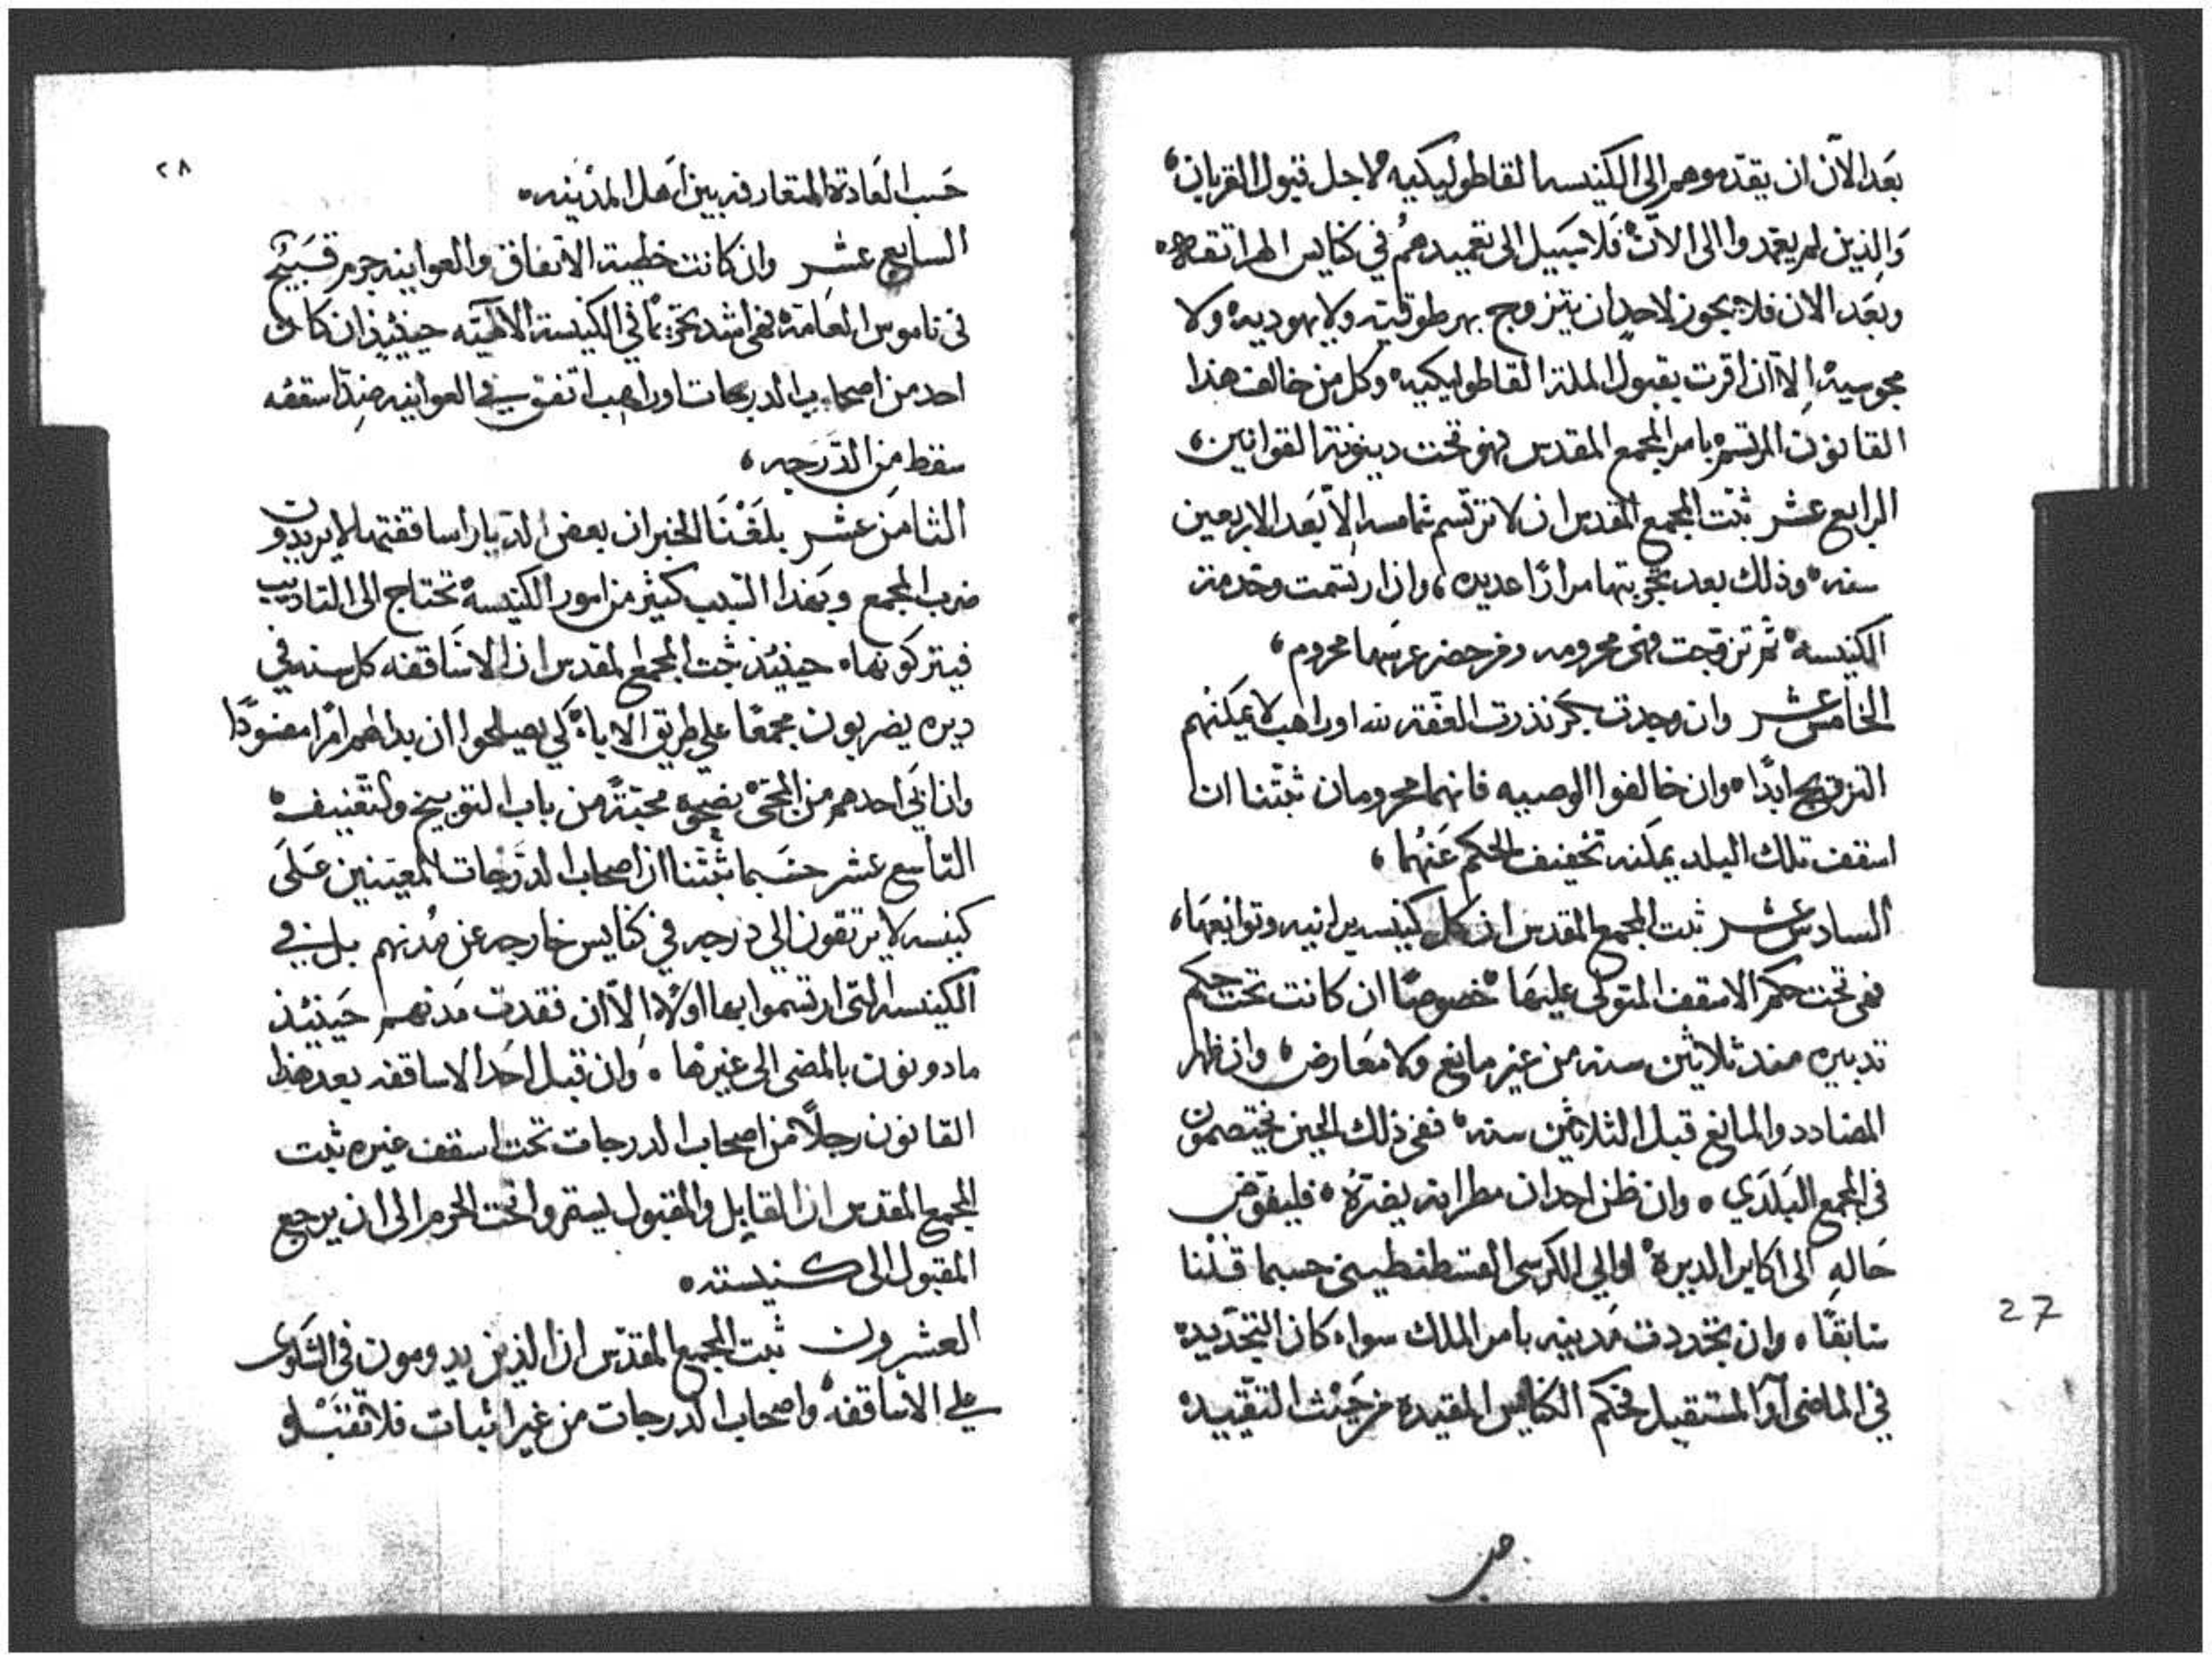 بعَد الآن ان يقدّموهم الى الكنيسه القاطوليكيه لاجل قبول القربان،
وَالذين لم يعتمدوا الى الآن، فَلا سَبَيل الى تعميدهمُ في كنايس الهراتقه.
وبعَد الان فلا يجوز لاحدٍ ان يتزوج بهرطوقيّه ولا يهوديه، ولا
مجوسيه، اِلاّ ان اقرت بقبول الملة القاطوليكيه، وكل من خالف هذا
القانون المرتسم بامر المجمع المقدس فهو تحت دينونة القوانين،
الرابع عشر ثبّت المجمع المقدس ان لا ترتسم شماسه اِلاّ بَعَد الاربعين
سنه، وذلك بعد تجربتها مرارًا عديده، وان ارتسمت وخدمة
الكنيسه، ثم تزوّجت فهى محرومه ومن حضر عرسها محروم،
الخامس عشر وان وجدت بكر نذرت العفّة لله او راهب لا يمكنهم
التزويج ابدًا، وان خالفوا الوصيه فانهما محرومان ثبّتنا ان
اسقف تلك البلد يمكنه تخفيف الحكم عَنهُما،
السادس عشر ثبت المجمع المقدس ان كل كنيسه برانيه وتوابعها،
فهى تحت حكم الاسقف المتولى عليهَا، خصوصًا ان كانت تحت حكم
تدبيره منذ ثلاثين سنه من غير مانع ولا مُعارض، وان ظهر
المضادد والمانع قبل الثلاثين سنه، ففي ذلك الحين يختصمون
في المجمع البَلدَي، وان ظن احد ان مطرانه يضرّهُ، فليفوّض
حَاله الى اكابر الديره، او الى الكرسى القسطنطينى حسبما قلنا
سَابقًا، وان تجددت مَدينه بامر الملك سواء كان التجديده
في الماضى او المستقبل فحكم الكنايس المقيدة من حَيث التقييده
27
حَسب العَادة المتعارفه بين اَهل المدينه،
السابع عشر وان كانت خطية الاتفاق والعوانيه جرم قبَيح
في ناموس العَامّة، فهى اشد تحريمًا في الكنيسة الالهيّه حينئيذٍ ان كان
احد من اصحاب الدرجات او راهب اتفق في العوانيه ضدّ اسقفه
سقط من الدَّرَجه،
الثامن عشر بلغَنَا الخبر ان بعض الديار اساقفتها لا يريدون
ضرب المجمع وبهَذا السبب كثير من امور الكنيسه، تحتاج الى التاديب
فيتركونها، حينئذ ثبت المجمع المقدس ان الاسَاقفه كل سنه في
ديره يضربون مجمعًا على طريق الاباء، كي يصلحوا ان بدا لهم امرًا مفسُودًا
وان ابَى احدهم من المجئ، نصحوه محبّةً من باب التوبيخ والتعنيف،
التاسع عشر حسَبما ثبّتنا ان اصحاب الدّرَجات المعيّنين عَلَى
كنيسه لا يرتقون الى درجه في كنايس خارجه عن مُدنهم بل في
الكنيسه التى ارتسموا بها اولاً، اِلاّ ان فقدت مَدنهم حَينئذ
مادونون بالمضى الى غيرها، وان قبل احَد الاساقفه بعد هذا
القانون رجلاً من اصحاب الدرجات تحت اسقف غيره ثبت
المجمع المقدس ان القابل والمقبول يستقروا تحت الحرم الى ان يرجع
المقبول الى كنيسته،
العشرون ثبت المجمع المقدّس ان الذين يدومون في الشكوى
على الاساقفه، واصحاب الدرجات من غير اثبات فلا تقبَلو
٢٨